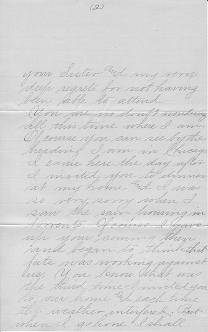 (2)
your Sister and my very
deep regret for not having
been able to attend.
You are no doubt wondering
all this time where I am.
Of course you can see by the
heading I am in Chicago
I came here the day after
I invited you to dinner
at my home and I was
so very sorry when I
saw the rain pouring in
torrents of course I gave
up your coming then
and seem to think that
fate was working against
us. You know that was
the third time I invited you
to our home and each time
the weather interfered. But
when I go home I shall